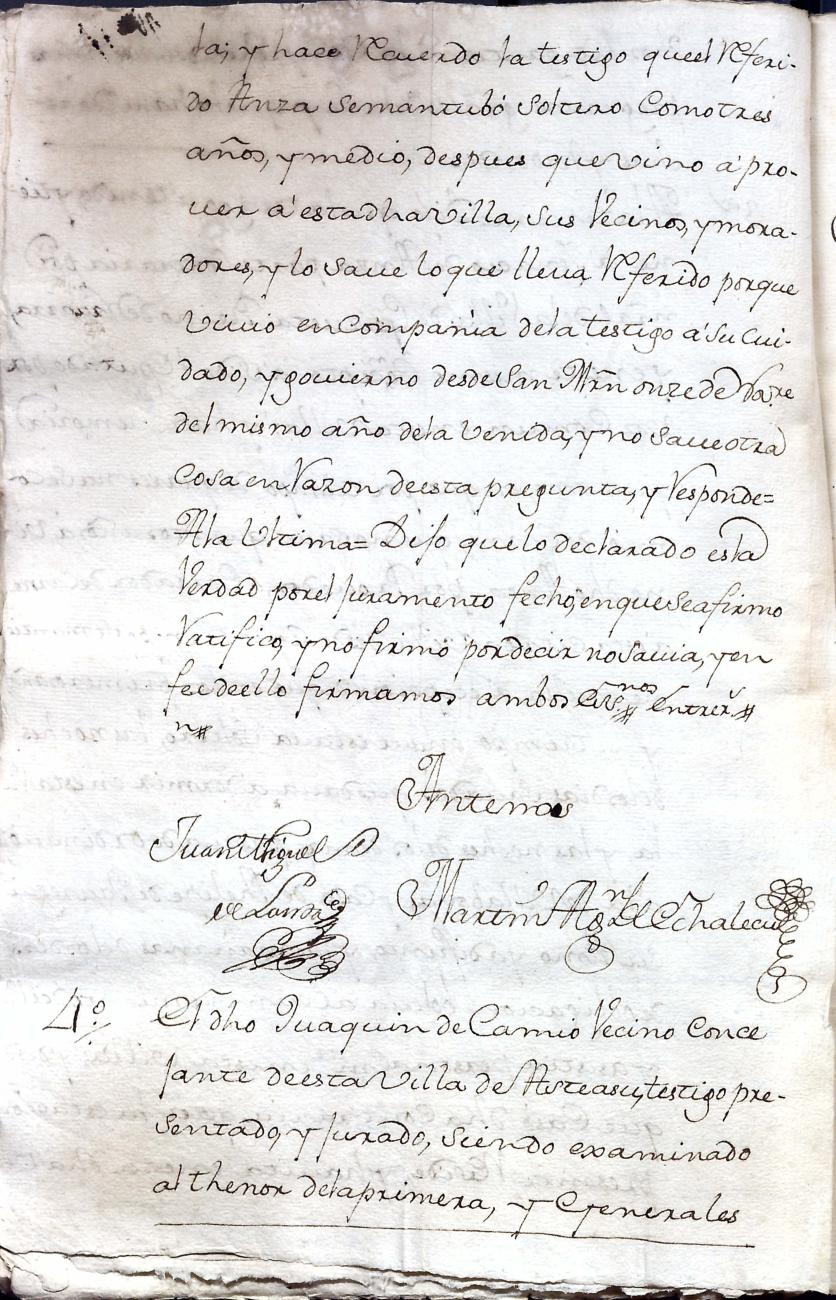 la; y hace Recuerdo la testigo queel Referi-
do Anza semantubó soltero Comotres
años, y medio, despues quevino a'pro-
uer a'estadhavilla, sus Vecinos, y mora-
dores, y lo save loque lleva Referido porque
Vivió enCompañia delatestigo a'su cui-
dado, y govierno desdeSan Mrn onzede
delmismo año dela venida, y no saveotra
Cosa enRazon deesta pregunta, y Responde=
Ala Ultima= Dijo quelo declarado esla
Verdad porel Juramento fecho, enqueseafirmo
Ratifico, y nofirmó pordecir nosavia, y en
feedeello firmamos ambos Essnos Entrerrs
n
Antemos
Juan Miguel
de Landa
Martin Agn de Echalecu
4º
El dho Juaquin de Camio Vecino Conce
jante deesta Villa de Asteasu, testigo pre-
sentado, y Jurado, siendo examinado
al thenor delaprimera, y Generales